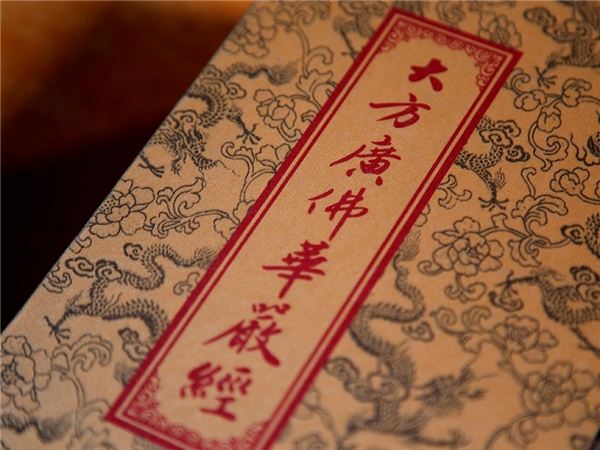 大方廣佛華嚴經